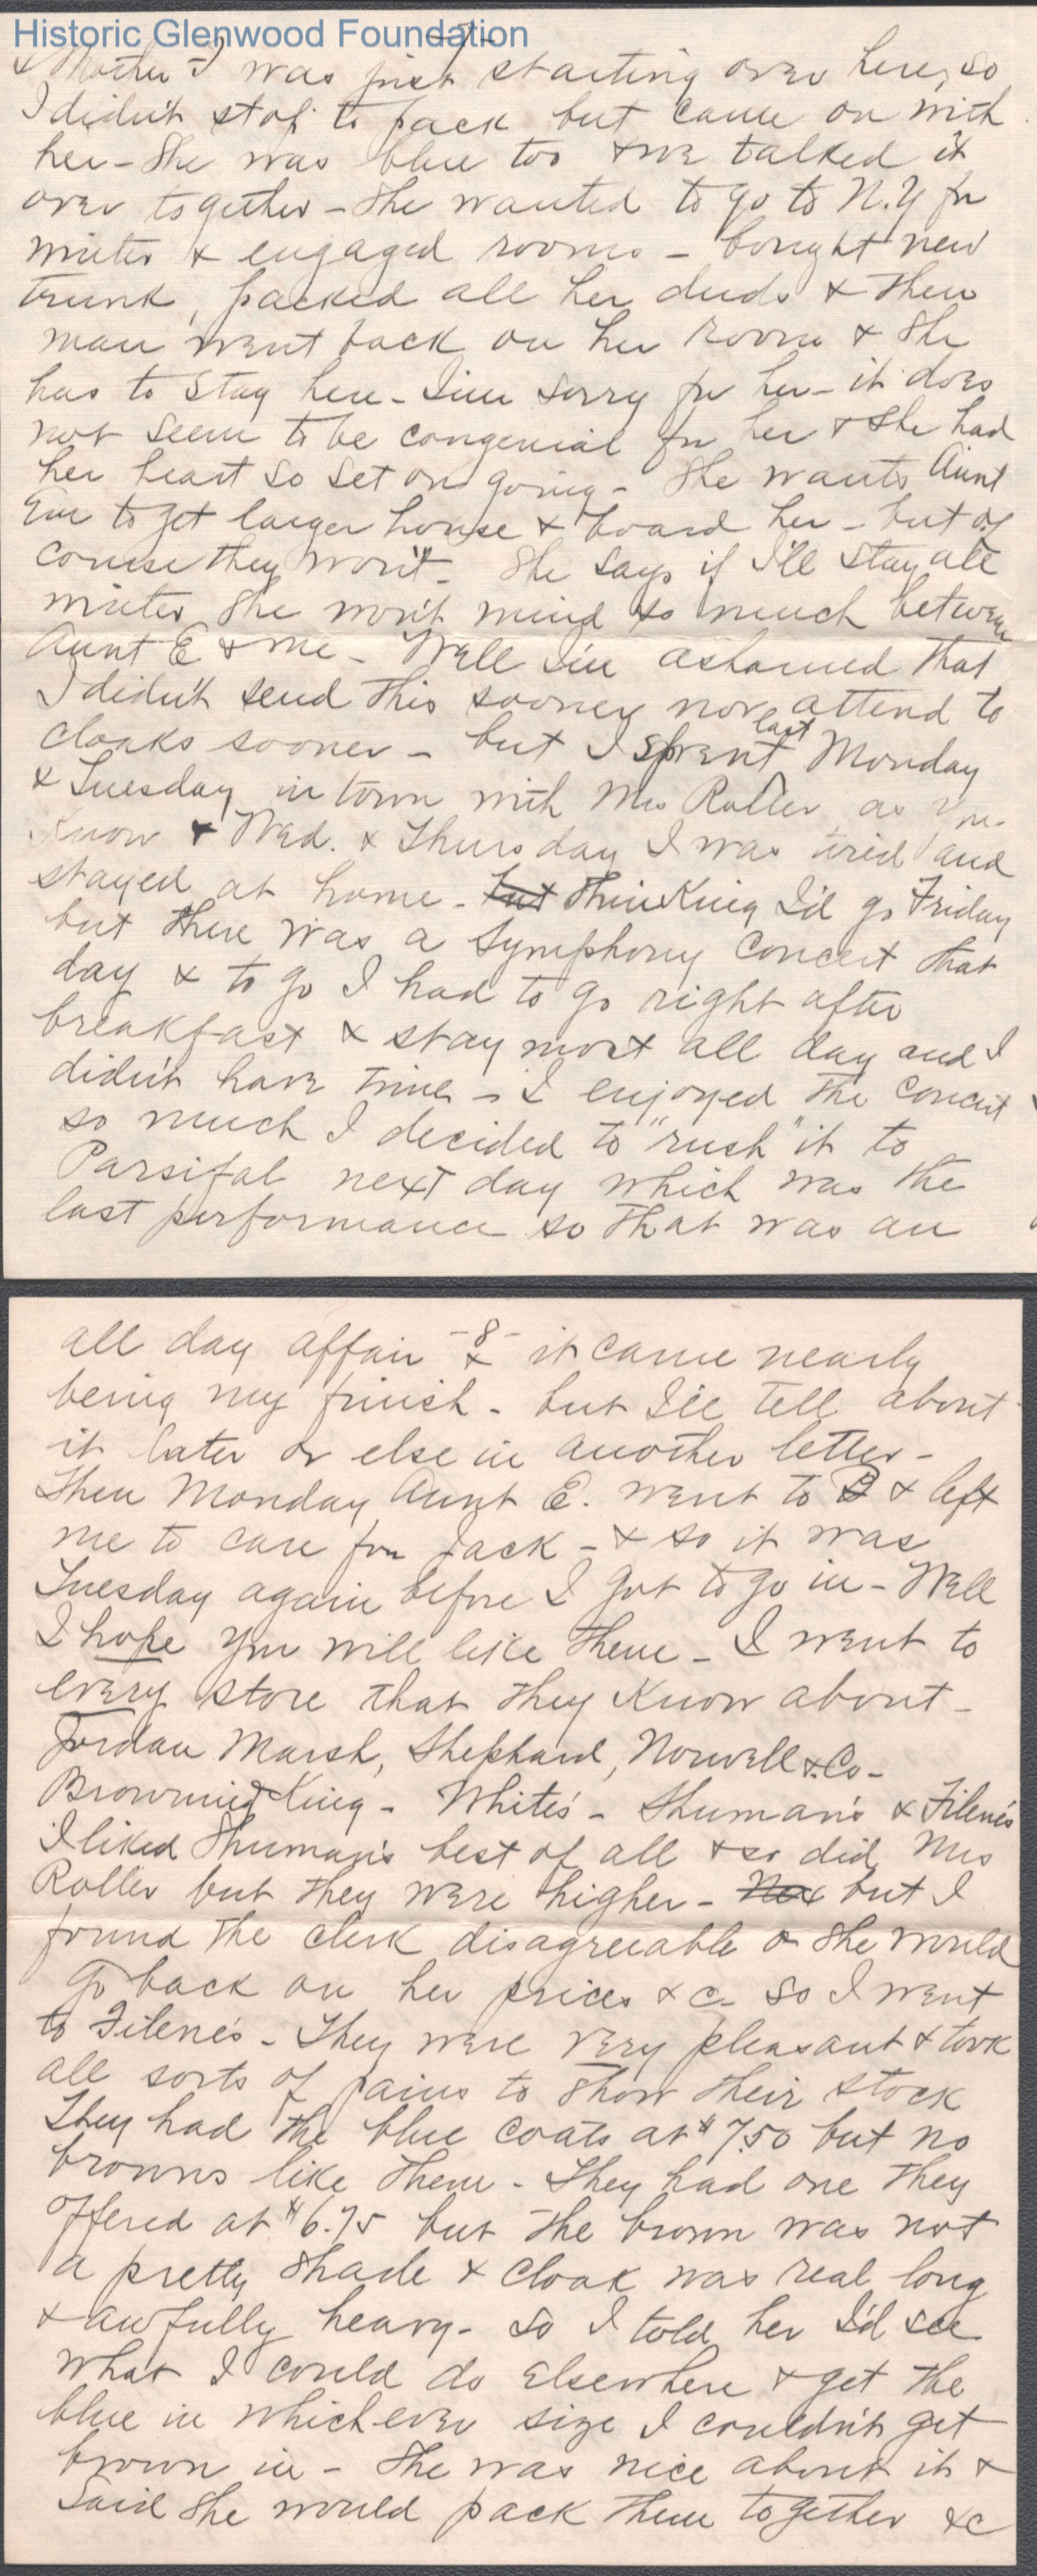 Historic Glenwood Foundation
-7-
& Mother & I was just starting over here, so
I didn't stop to pack but came on with
her - She was blue too & we talked it
over together - She wanted to go to N.Y for
winter & engaged rooms - bought new
trunk, packed all her duds & then
man went back on her room & she
has to stay here - I'm sorry for her - it does
not seem to be congenial for her & she had
her heart so set on going - She wants Aunt
Em to get larger house & board her - but of
course they won't - She says if I'll stay all
winter she won't mind so much between
Aunt E & me - Well I'm ashamed that
I didn't send this sooner nor attend to
cloaks sooner - but I spent last Monday
& Tuesday in town with Mrs Roller as you
know & Wed. & Thursday I was tired and
stayed at home - but thinking I'd go Friday
but there was a Symphony Concert that
day & to go I had to go right after
breakfast & stay most all day and I
didn't have time - I enjoyed the concert
so much I decided to "rush" it to
Parsifal next day which was the
last performance so that was an
-8-
all day affair & it came nearly
being my finish - but I'll tell about
it later or else in another letter -
Then Monday Aunt E. went to B & left
me to care for Jack - & so it was
Tuesday again before I got to go in - Well
I hope you will like them - I went to
every store that they know about -
Jordan Marsh, Shephard, Norwell & Co -
Browning King - White's - Shuman's & Filene's
I liked Shuman's best of all & so did Mrs
Roller but they were higher - but I
found the clerk disagreeable & she would
go back on her prices &c - so I went
to Filene's - They were very pleasant & took
all sorts of pains to show their stock
They had the blue coats at $7.50 but no
browns like them - They had one they
offered at $6.75 but the brown was not
a pretty shade & cloak was real long
& awfully heavy - so I told her I'd see
what I could do elsewhere & get the
blue in whichever size I couldn't get
brown in - She was nice about it &
said she would pack them together &c